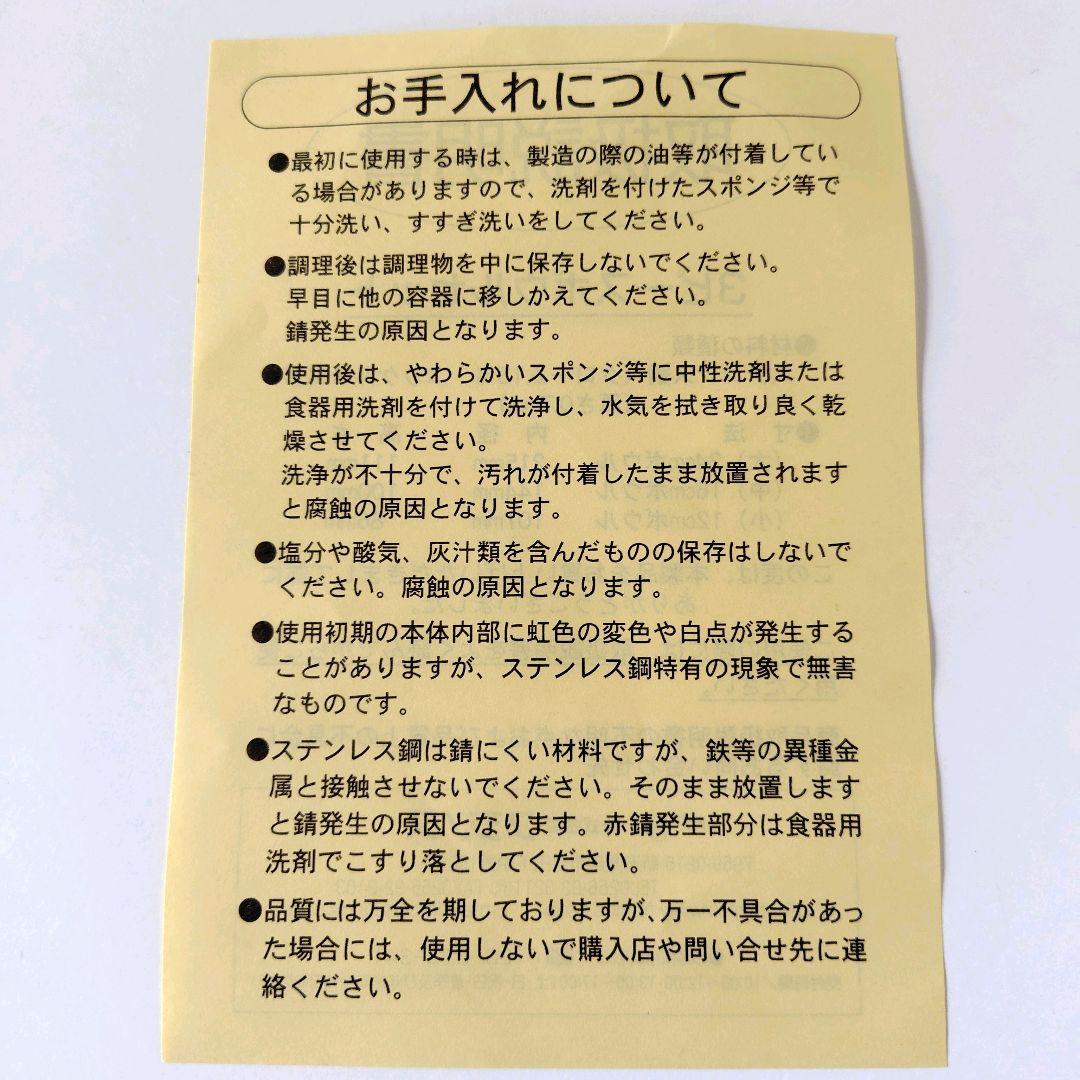 お手入れについて
●最初に使用する時は、製造の際の油等が付着してい
る場合がありますので、洗剤を付けたスポンジ等で
十分洗い、すすぎ洗いをしてください。
●調理後は調理物を中に保存しないでください。
早目に他の容器に移しかえてください。
錆発生の原因となります。
●使用後は、やわらかいスポンジ等に中性洗剤または
食器用洗剤を付けて洗浄し、水気を拭き取り良く乾
燥させてください。
洗浄が不十分で、汚れが付着したまま放置されます
と腐蝕の原因となります。
●塩分や酸気、灰汁類を含んだものの保存はしないで
ください。腐蝕の原因となります。
●使用初期の本体内部に虹色の変色や白点が発生する
ことがありますが、ステンレス鋼特有の現象で無害
なものです。
●ステンレス鋼は錆にくい材料ですが、鉄等の異種金
属と接触させないでください。そのまま放置します
と錆発生の原因となります。赤錆発生部分は食器用
洗剤でこすり落としてください。
●品質には万全を期しておりますが、万一不具合があっ
た場合には、使用しないで購入店や問い合せ先に連
絡ください。